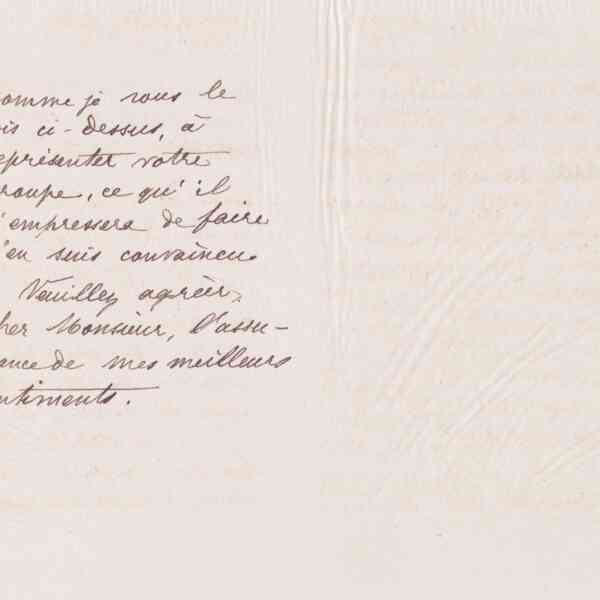 omme je vous le
is ci-dessus, à
eprésenter votre
roupe, ce qu'il
'empressera de faire
'en suis convaincu.
Veuillez agréer,
her Monsieur, l'assu-
ance de mes meilleurs
ntiments.